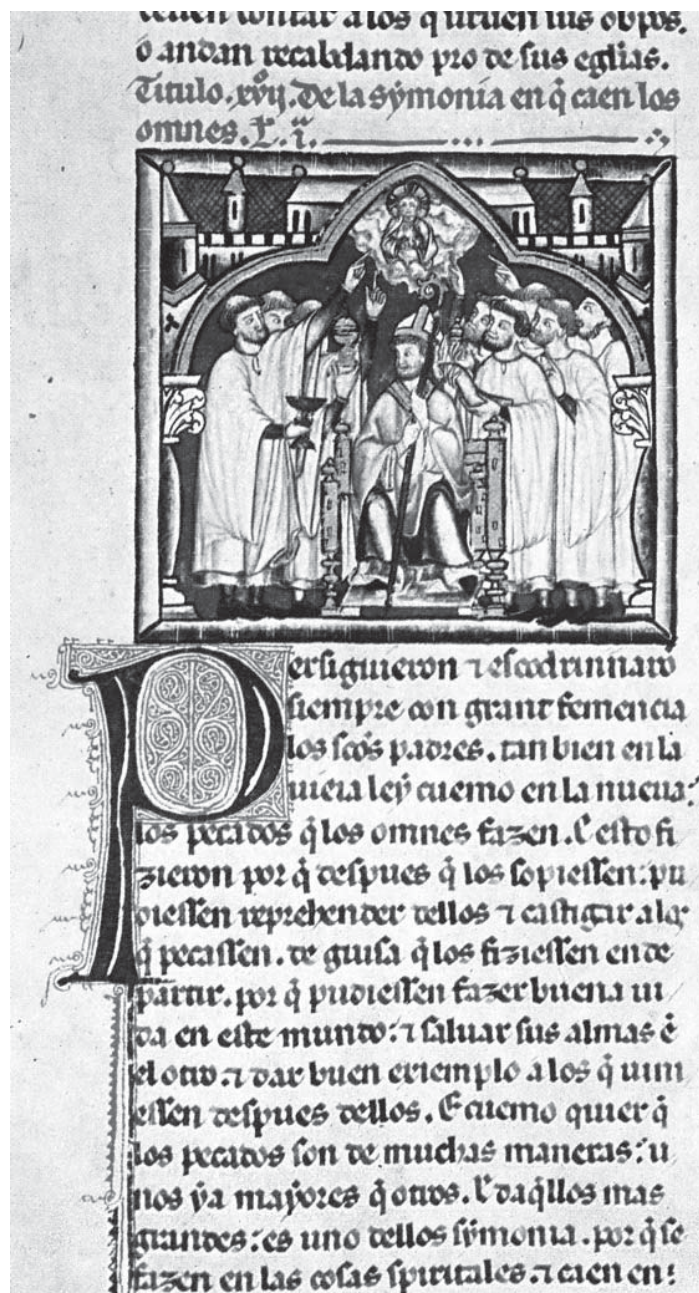 deuen contar a los q̃ siruen sus obp̃os.
o andan recabdando pro de sus eglias.
Titulo .xvij. De la symonia en q̃ caen los
omnes. L. i.
Persiguieron ⁊ escodrinnarõ
siempre con grant femencia
los sc̃os padres. tan bien en la
uieia ley cuemo en la nueua:
los pecados q̃ los omnes fazen. E esto fi
zieron por q̃ despues q̃ los sopiessen: pu
diessen reprehender dellos ⁊ castigar alos
q̃ pecassen. de guisa q̃ los fiziessen ende
partir. por q̃ pudiessen fazer buena ui
da en este mundo: ⁊ saluar sus almas ẽ
el otro. ⁊ dar buen exiemplo a los q̃ uini
essen despues dellos. E cuemo quier q̃
los pecados son de muchas maneras: u
nos ya mayores q̃ otros. E daq̃llos mas
grandes: es uno dellos symonia. por q̃ se
fazen en las cosas spiritales. ⁊ caen en: